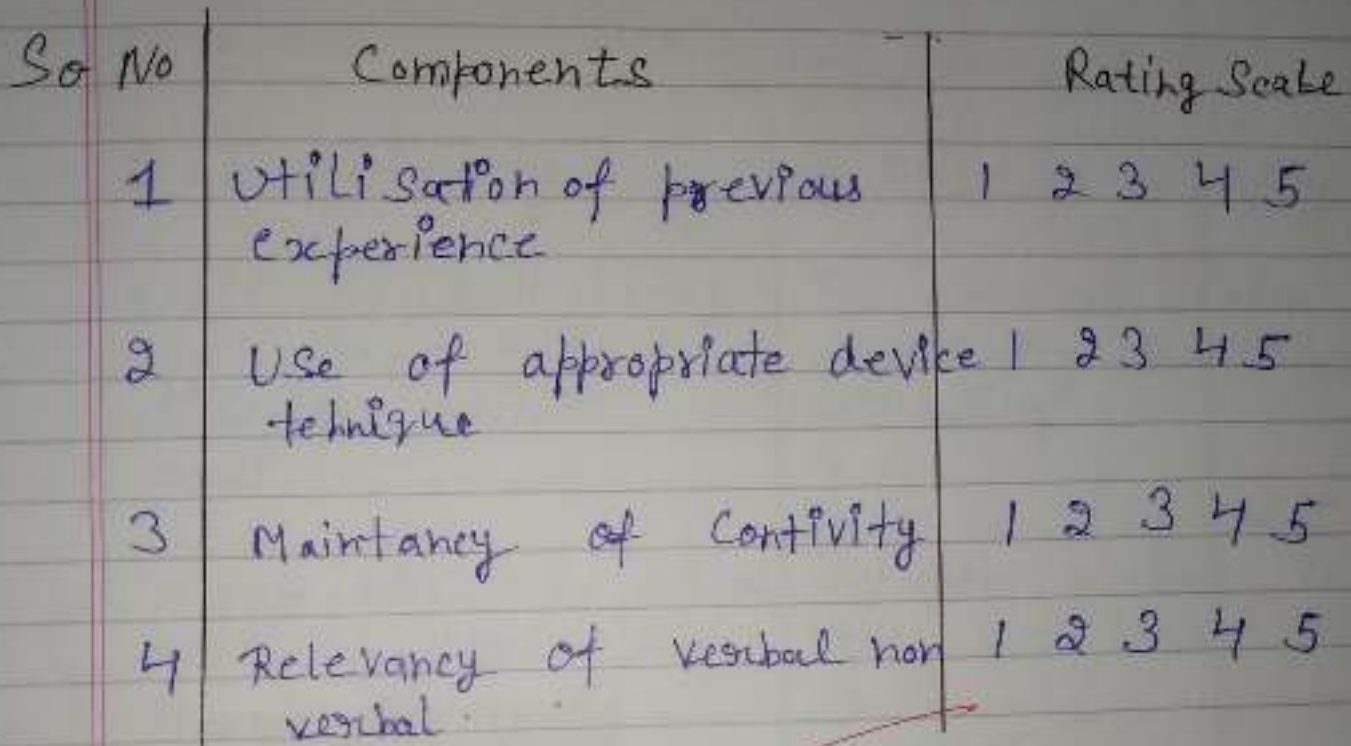 Sr No Components Rating Scale
1 Utilisation of previous 1 2 3 4 5
experience
2 Use of appropriate device 1 2 3 4 5
tehnique
3 Maintancy of Contivity 1 2 3 4 5
4 Relevancy of verbal non 1 2 3 4 5
verbal